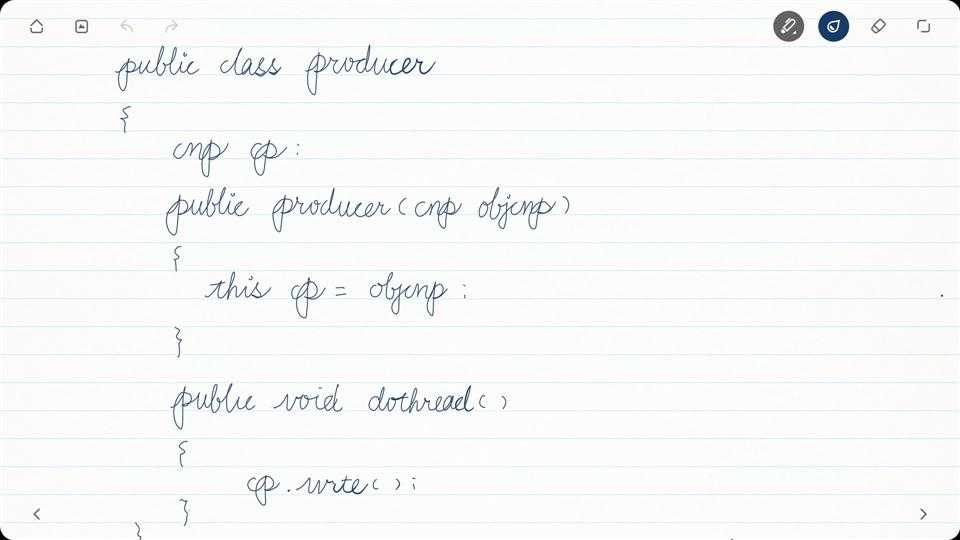 public class producer
{
cnp cp :
public producer ( cnp objcnp )
{
this cp = objcnp :
}
public void dothread ( )
{
cp . wrte ( ) ;
}
}